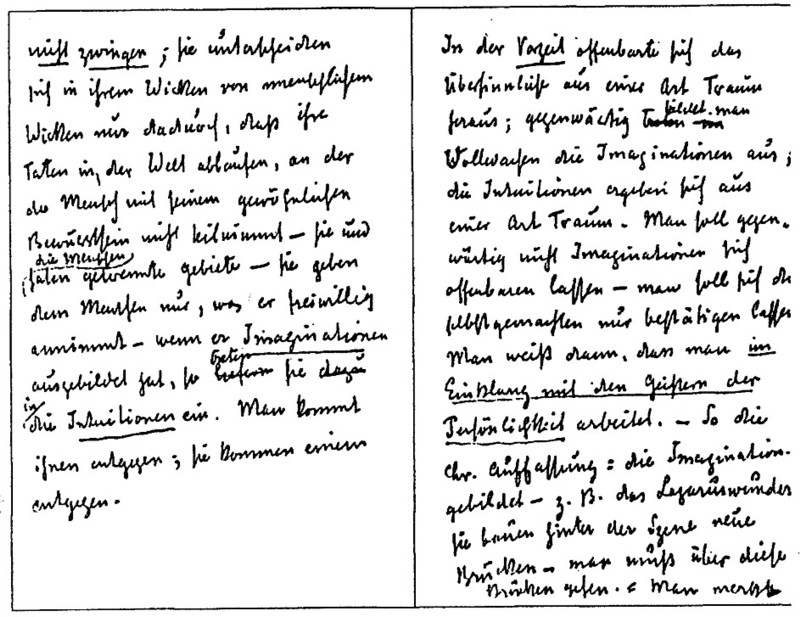 nicht zwingen; sie unterscheiden
sich in ihrem Wirken von menschlichem
Wirken nur dadurch, dass ihre
Taten in der Welt ablaufen, an der
der Mensch mit seinem gewöhnlichen
Bewusstsein nicht teilnimmt – sie und
die Menschen
getrennte Gebiete – sie geben
dem Menschen nur, was er freiwillig
annimmt – wenn er Imaginationen
ausgebildet hat, so treten sie dazu
in
die Intuitionen ein. Man kommt
ihnen entgegen; sie kommen einem
entgegen.
In der Vorzeit offenbarte sich das
Übersinnliche aus einer Art Traum
heraus; gegenwärtig bildet man
Vollwachen die Imaginationen aus;
die Intuitionen ergeben sich aus
einer Art Traum. – Man soll gegen-
wärtig nicht Imaginationen sich
offenbaren lassen – man soll sich die
selbstgemachten nur bestätigen lassen
Man weiß dann, dass man im
Einklang mit den Geistern der
Persönlichkeit arbeitet. – So die
chr. Auffassung = die Imagination
gebildet – z. B. das Lazaruswunder
sie bauen hinter der Szene neue
Brücken – man muß über diese
Brücken gehen. = Man merkt